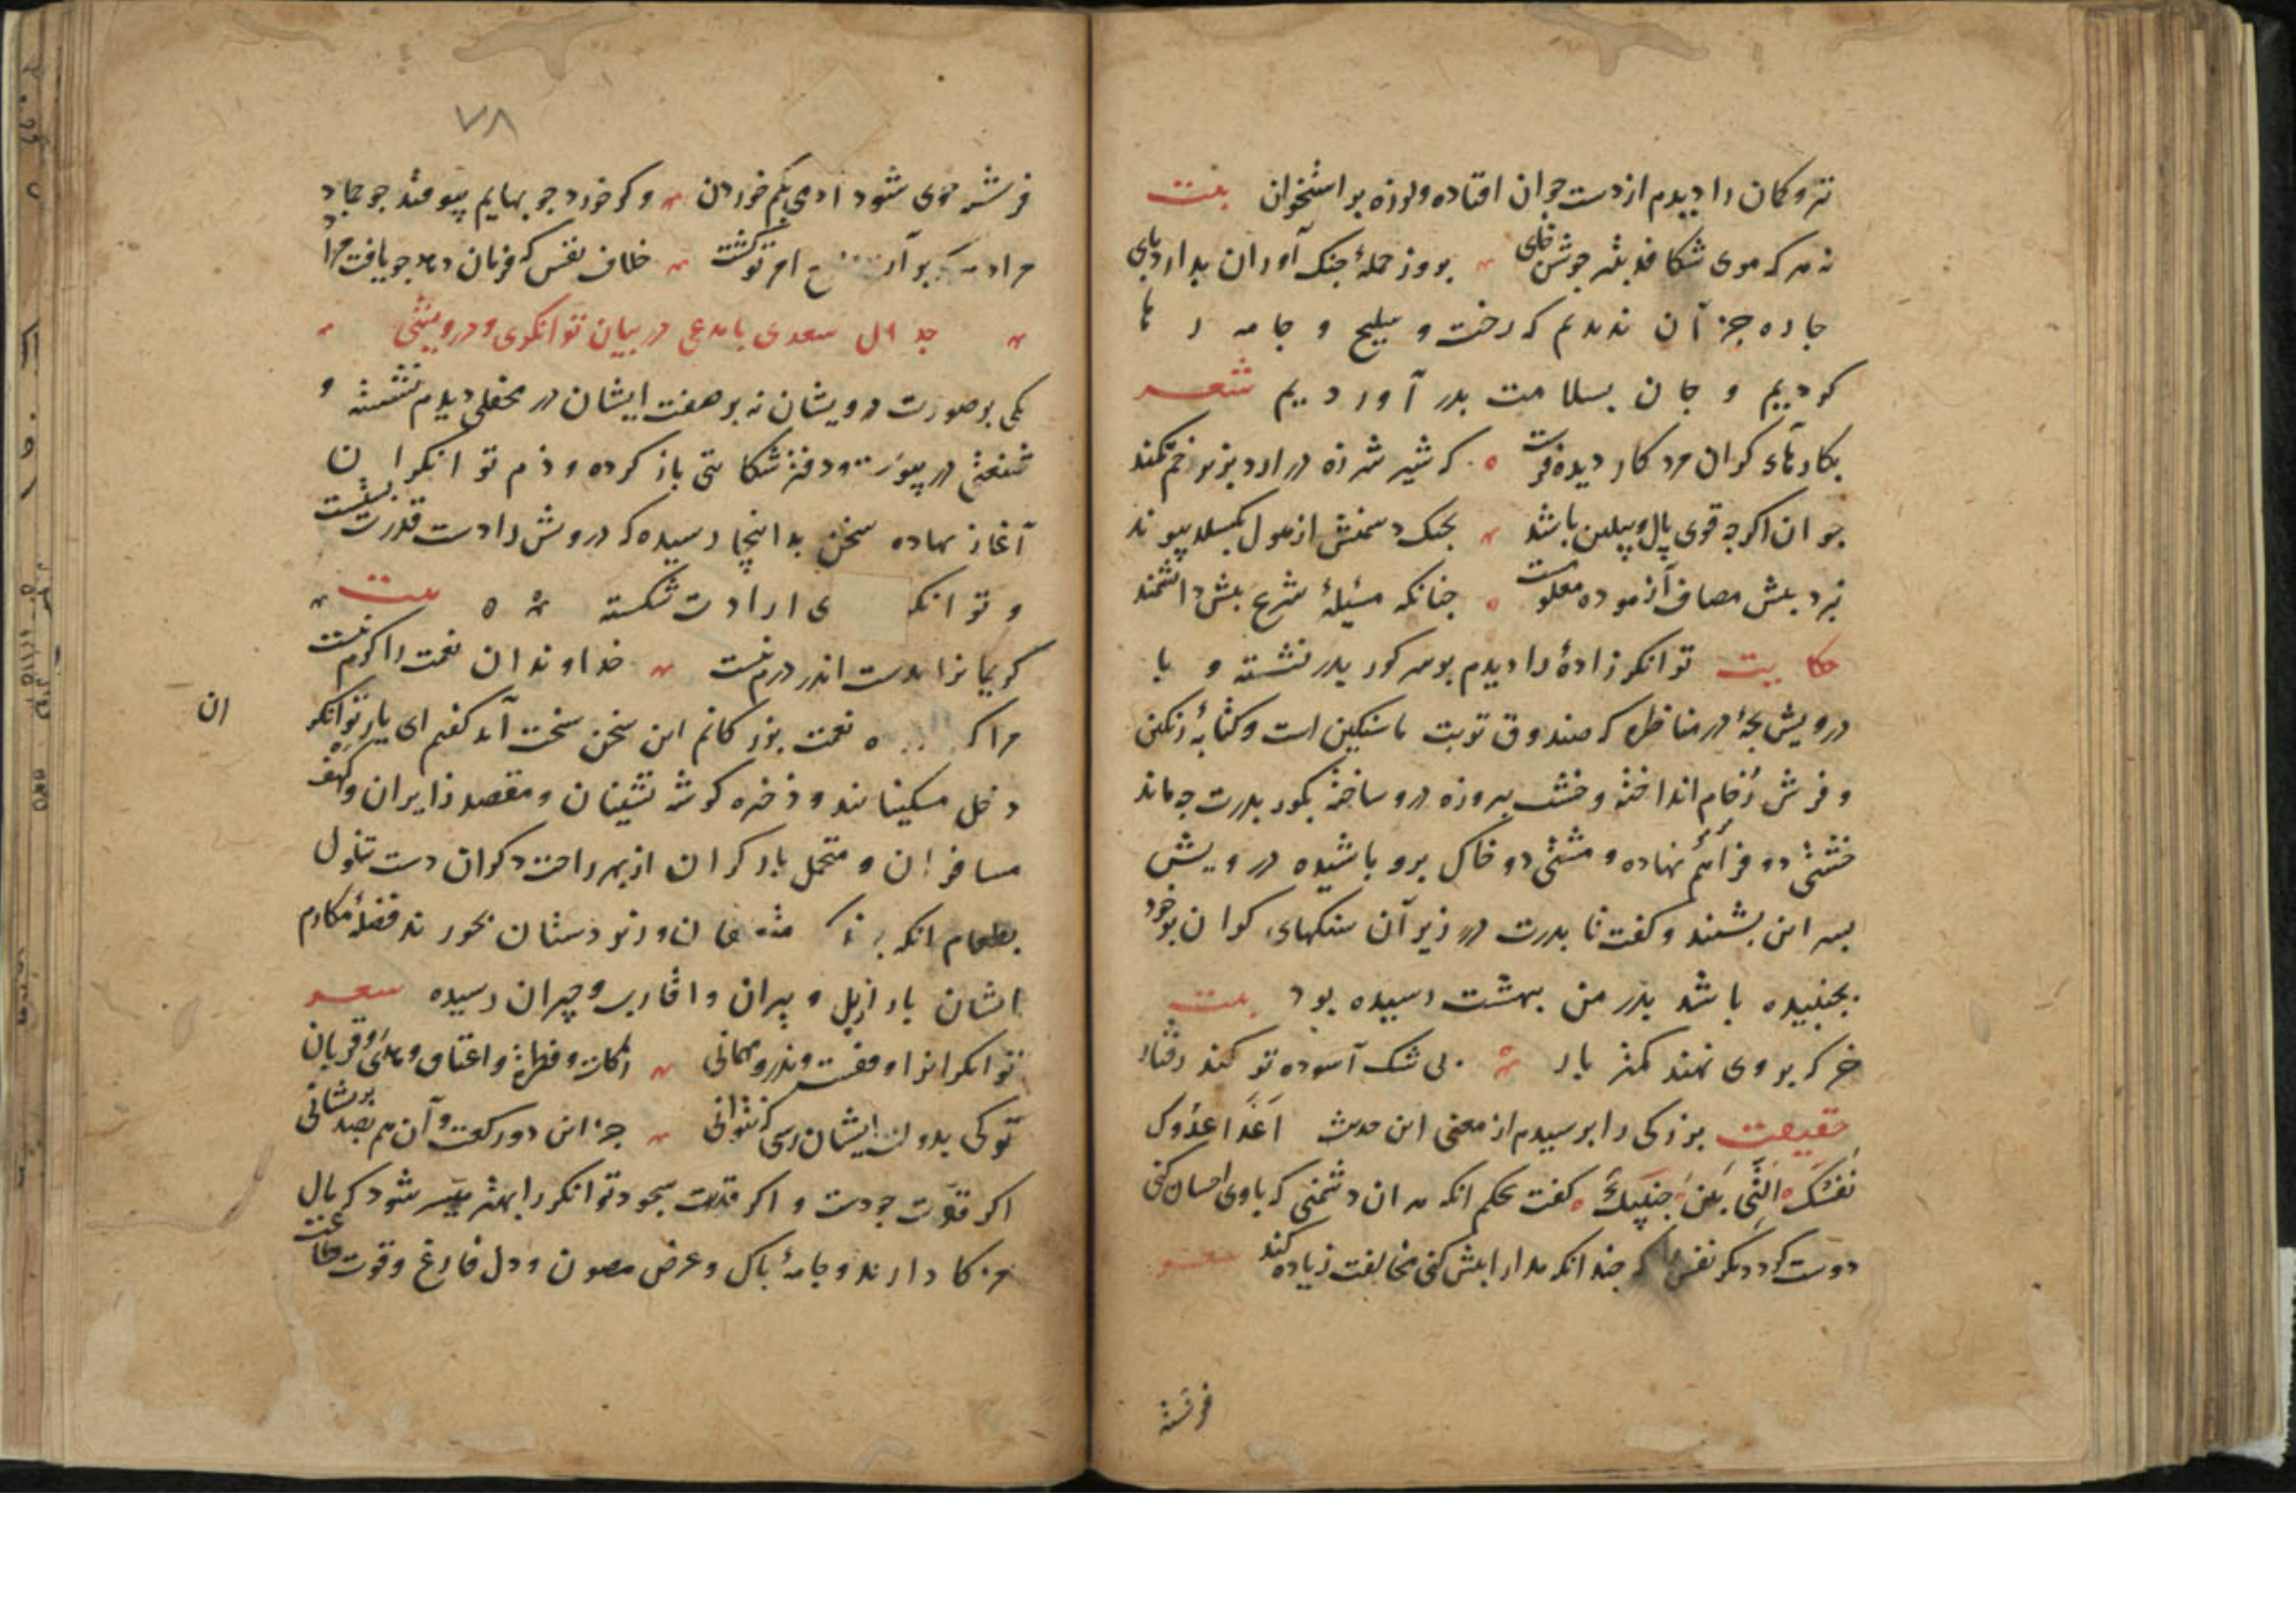 تیر و کمان را دیدم از دست جوان افتاده و لرزه بر استخوان بیت
نه هر که موی شکافد بتیر جوشن خای بروز حملهٔ جنک آوران بدارد پای
چاره جز آن ندیدم که رخت و سلیح و جامه رها
کردیم و جان بسلامت بدر آوردیم شعر
بکارهای کران مرد کار دیده فرست که شیر شرزه در آرد بزیر خم کمند
جوان اکر چه قوی یال و پیلتن باشد بجنک دشمنش از هول بکسلد پیوند
نبرد پیش مصاف آزموده معلومست چنانکه مسئلهٔ شرع پیش دانشمند
حکایت توانکر زادهٔ را دیدم بر سر کور پدر نشسته و با
درویش بچهٔ در مناظره که صندوق تربت ما سنکین است و کتابهٔ رنکین
و فرش رخام انداخته و خشت پیروزه درو ساخته بکور پدرت چه ماند
خشتی دو فراهم نهاده و مشتی دو خاک برو پاشیده درویش
پسر این بشنید و کفت تا پدرت در زیر آن سنکهای کران بر خود
بجنبیده باشد پدر من بهشت رسیده بود بیت
خر که بر وی نهند کمتر بار بی شک آسوده تر کند رفتار
حقیقت بزرکی را پرسیدم از معنی این حدیث اَعْدَا عَدُوِّکَ
نَفْسُکَ الَّتِی بَیْنَ جَنْبَیْکَ کفت بحکم آنکه هر آن دشمنی که با وی احسان کنی
دوست کردد مکر نفس را که چندانکه مدارا بیش کنی مخالفت زیاده کند شعر
فرشته
۷۸
فرشته خوی شود آدمی بکم خوردن و کر خورد چو بهایم بیوفتد چو جماد
مراد هر که بر آری مطیع امر تو کشت خلاف نفس که فرمان دهد چو یافت مراد
جدال سعدی با مدعی در بیان توانکری و درویشی
یکی بر صورت درویشان نه بر صفت ایشان در محفلی دیدم نشسته و
شنعتی در پیوسته و دفتر شکایتی باز کرده و ذم توانکران
آغاز نهاده سخن بدانجا رسیده که درویش را دست قدرت بستست
و توانکر ی ارادت شکسته بیت
کریمانرا بدست اندر درم نیست خداوندان نعمت را کرم نیست
مرا که ه نعمت بزرکانم این سخن سخت آمد کفتم ای یار توانکر
ان
دخل مسکینانند و ذخیره کوشه نشینان و مقصد زایران و کهف
مسافران و متحمل بار کران از بهر راحت دکران دست تناول
بطعام آنکه برند که متعلقان و زیر دستان بخورند فضلهٔ مکارم
ایشان بارازیل و پیران و اقارب و جیران رسیده شعر
توانکرانرا وقفست و نذر و مهمانی زکات و فطره و اعتاق و هدی و قربانی
تو کی بدولت ایشان رسی که نتوانی جز این دو رکعت و آن هم بصد پریشانی
اکر قدرت جودست و اکر قوت سجود توانکر را بهتر میسر شود که مال
مزکا دارند و جامهٔ پاک و عرض مصون و دل فارغ و قوت طاعت